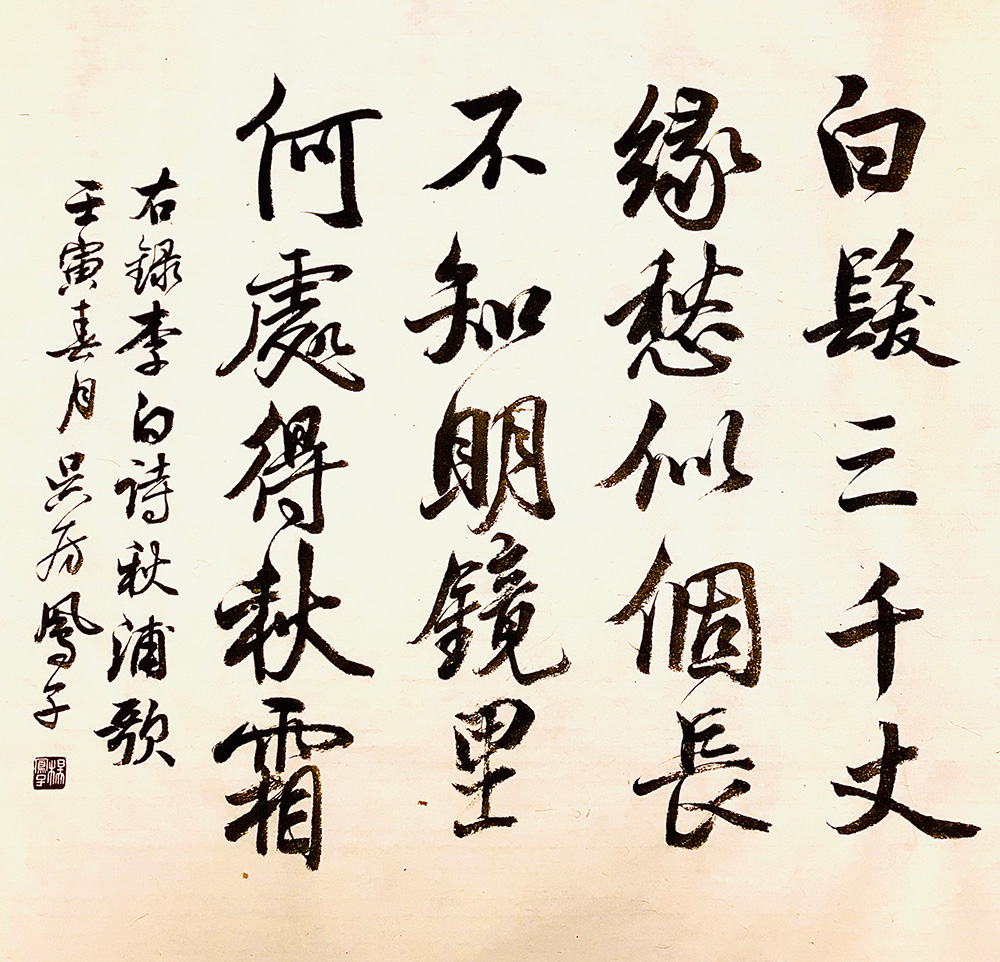 白髮三千丈
緣愁似個長
不知明鏡里
何處得秋霜
右録李白詩秋浦歌
壬寅春月吳方鳳子